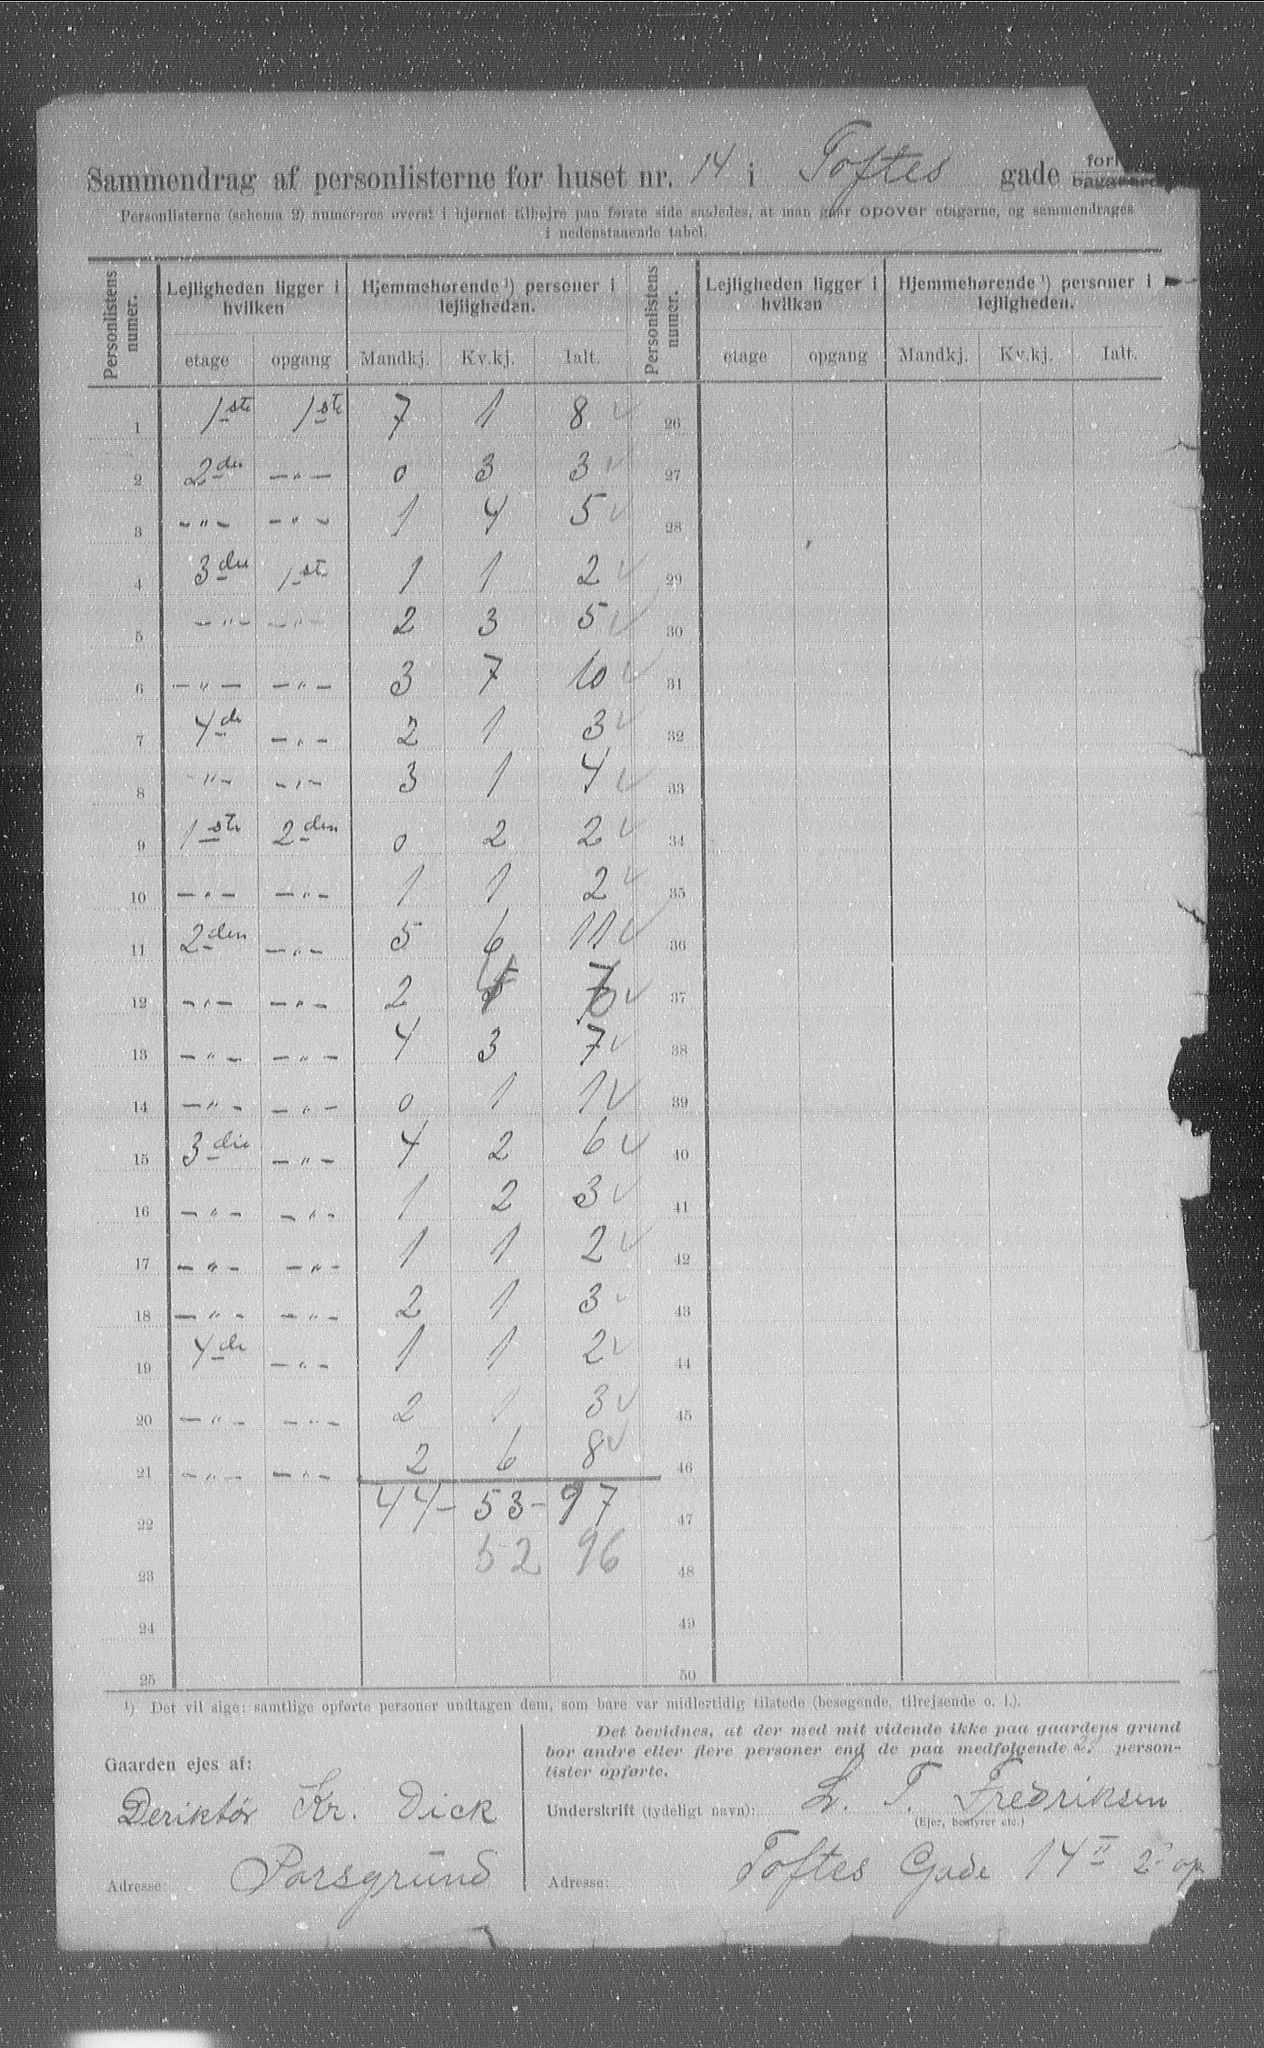 Sammendrag af personlisterne for huset nr. 14 i Toftes gade
Personlisterne (schema 2) numereres øverst i hjørnet tilhøjre paa første side saaledes, at man gaar opover etagerne, og sammendrages
i nedenstaaende tabel.
Personlistens numer. Lejligheden ligger i hvilken Hjemmehørende ¹) personer i lejligheden. Personlistens numer. Lejligheden ligger i hvilken Hjemmehørende ¹) personer i lejligheden.
etage opgang Mandkj. Kv.kj. Ialt. etage opgang Mandkj. Kv.kj. Ialt.
1 1ste 1ste 7 1 8 ✓ 26
2 2den —"— 0 3 3 ✓ 27
3 —"— —"— 1 4 5 ✓ 28
4 3die 1ste 1 1 2 ✓ 29
5 —"— —"— 2 3 5 ✓ 30
6 —"— —"— 3 7 10 ✓ 31
7 4de —"— 2 1 3 ✓ 32
8 —"— —"— 3 1 4 ✓ 33
9 1ste 2den 0 2 2 ✓ 34
10 —"— —"— 1 1 2 ✓ 35
11 2den —"— 5 6 11 ✓ 36
12 —"— —"— 2 ✓ 37
13 —"— —"— 4 3 7 ✓ 38
14 —"— —"— 0 1 1 ✓ 39
15 3die —"— 4 2 6 ✓ 40
16 —"— —"— 1 2 3 ✓ 41
17 —"— —"— 1 1 2 ✓ 42
18 —"— —"— 2 1 3 ✓ 43
19 4de —"— 1 1 2 ✓ 44
20 —"— —"— 2 1 3 ✓ 45
21 —"— —"— 2 6 8 ✓ 46
22 44 — 53 — 97 47
23 52 96 48
24 49
25 50
¹) Det vil sige: samtlige opførte personer undtagen dem, som bare var midlertidig tilstede (besøgende, tilrejsende o. l.).
Gaarden ejes af:
Deriktør Kr. Dick
Adresse: Porsgrund
Det bevidnes, at der med mit vidende ikke paa gaardens grund
bor andre eller flere personer end de paa medfølgende person-
lister opførte.
Underskrift (tydeligt navn): L. T. Fredriksen
(Ejer, bestyrer etc.)
Adresse: Toftes Gade 14 II 2 op